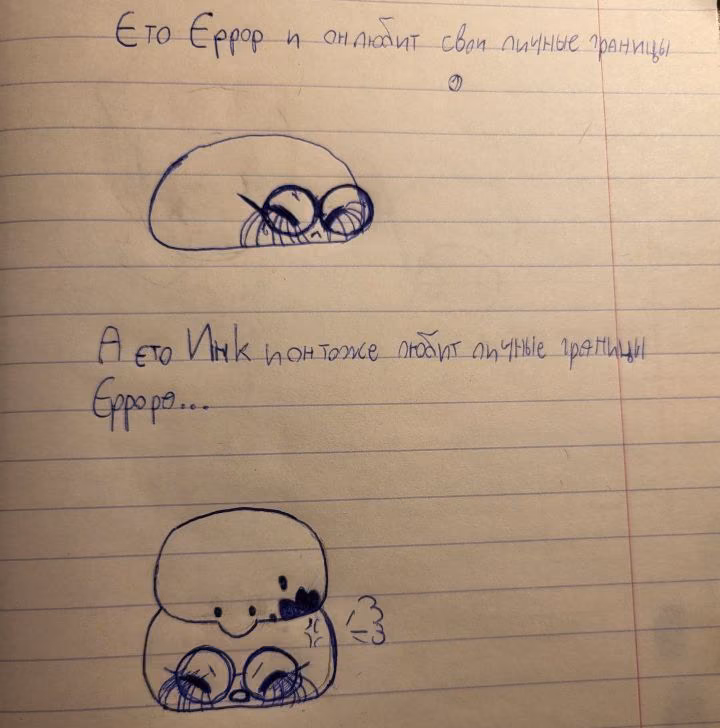 Єто Єррор и он любит свои личные границы
А єто Инк и он тоже любит личные границы
Єррора...